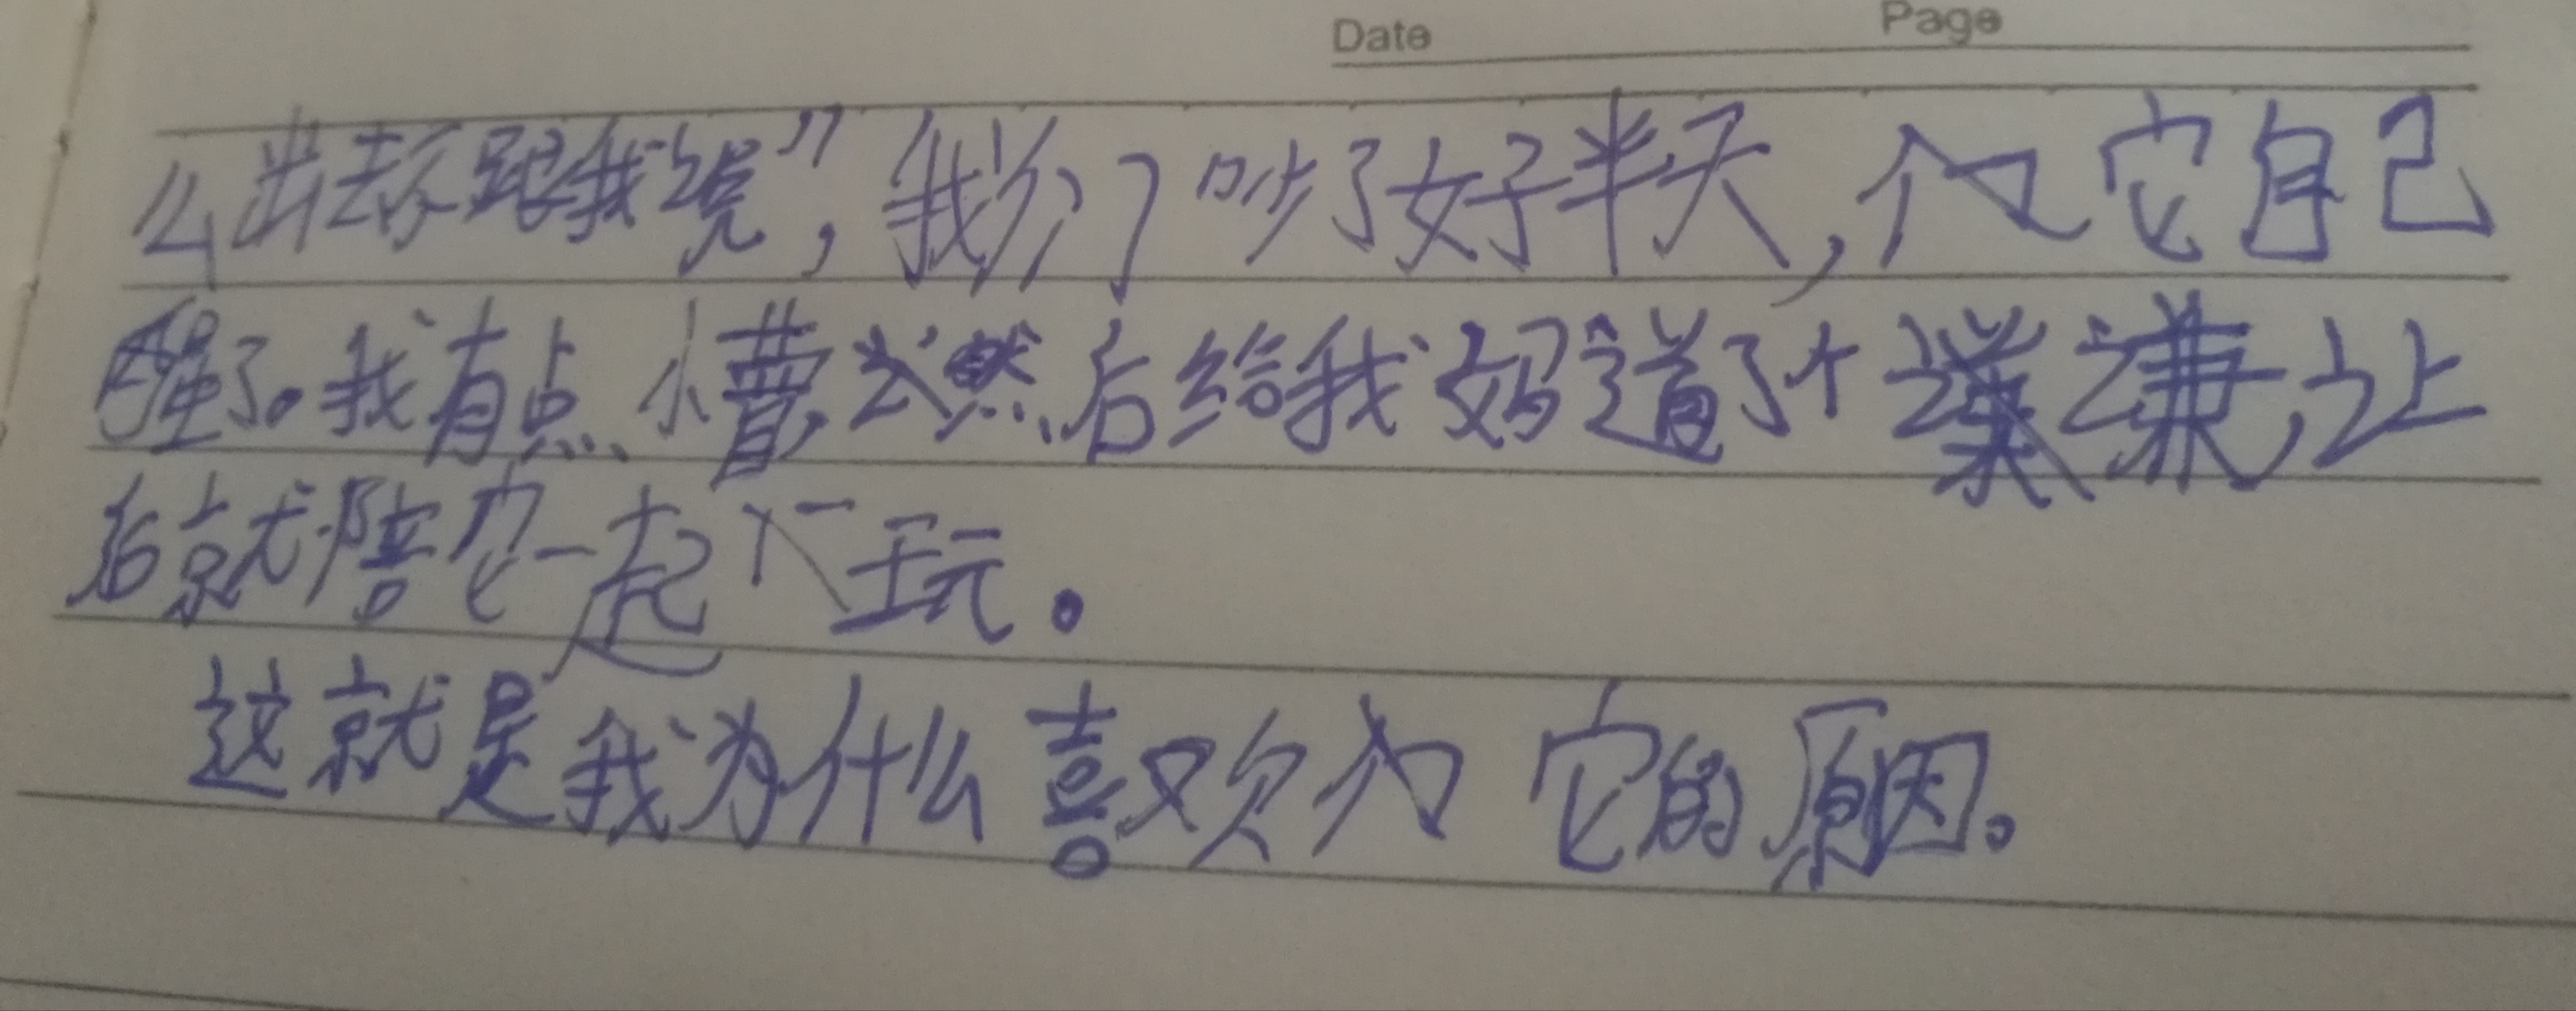 Date Page
么出去不跟我说”，我们吵了好半天，它自己
醒了。我有点小懵，然后给我妈道了个谦，让
后就陪它一起玩。
这就是我为什么喜欢它的原因。